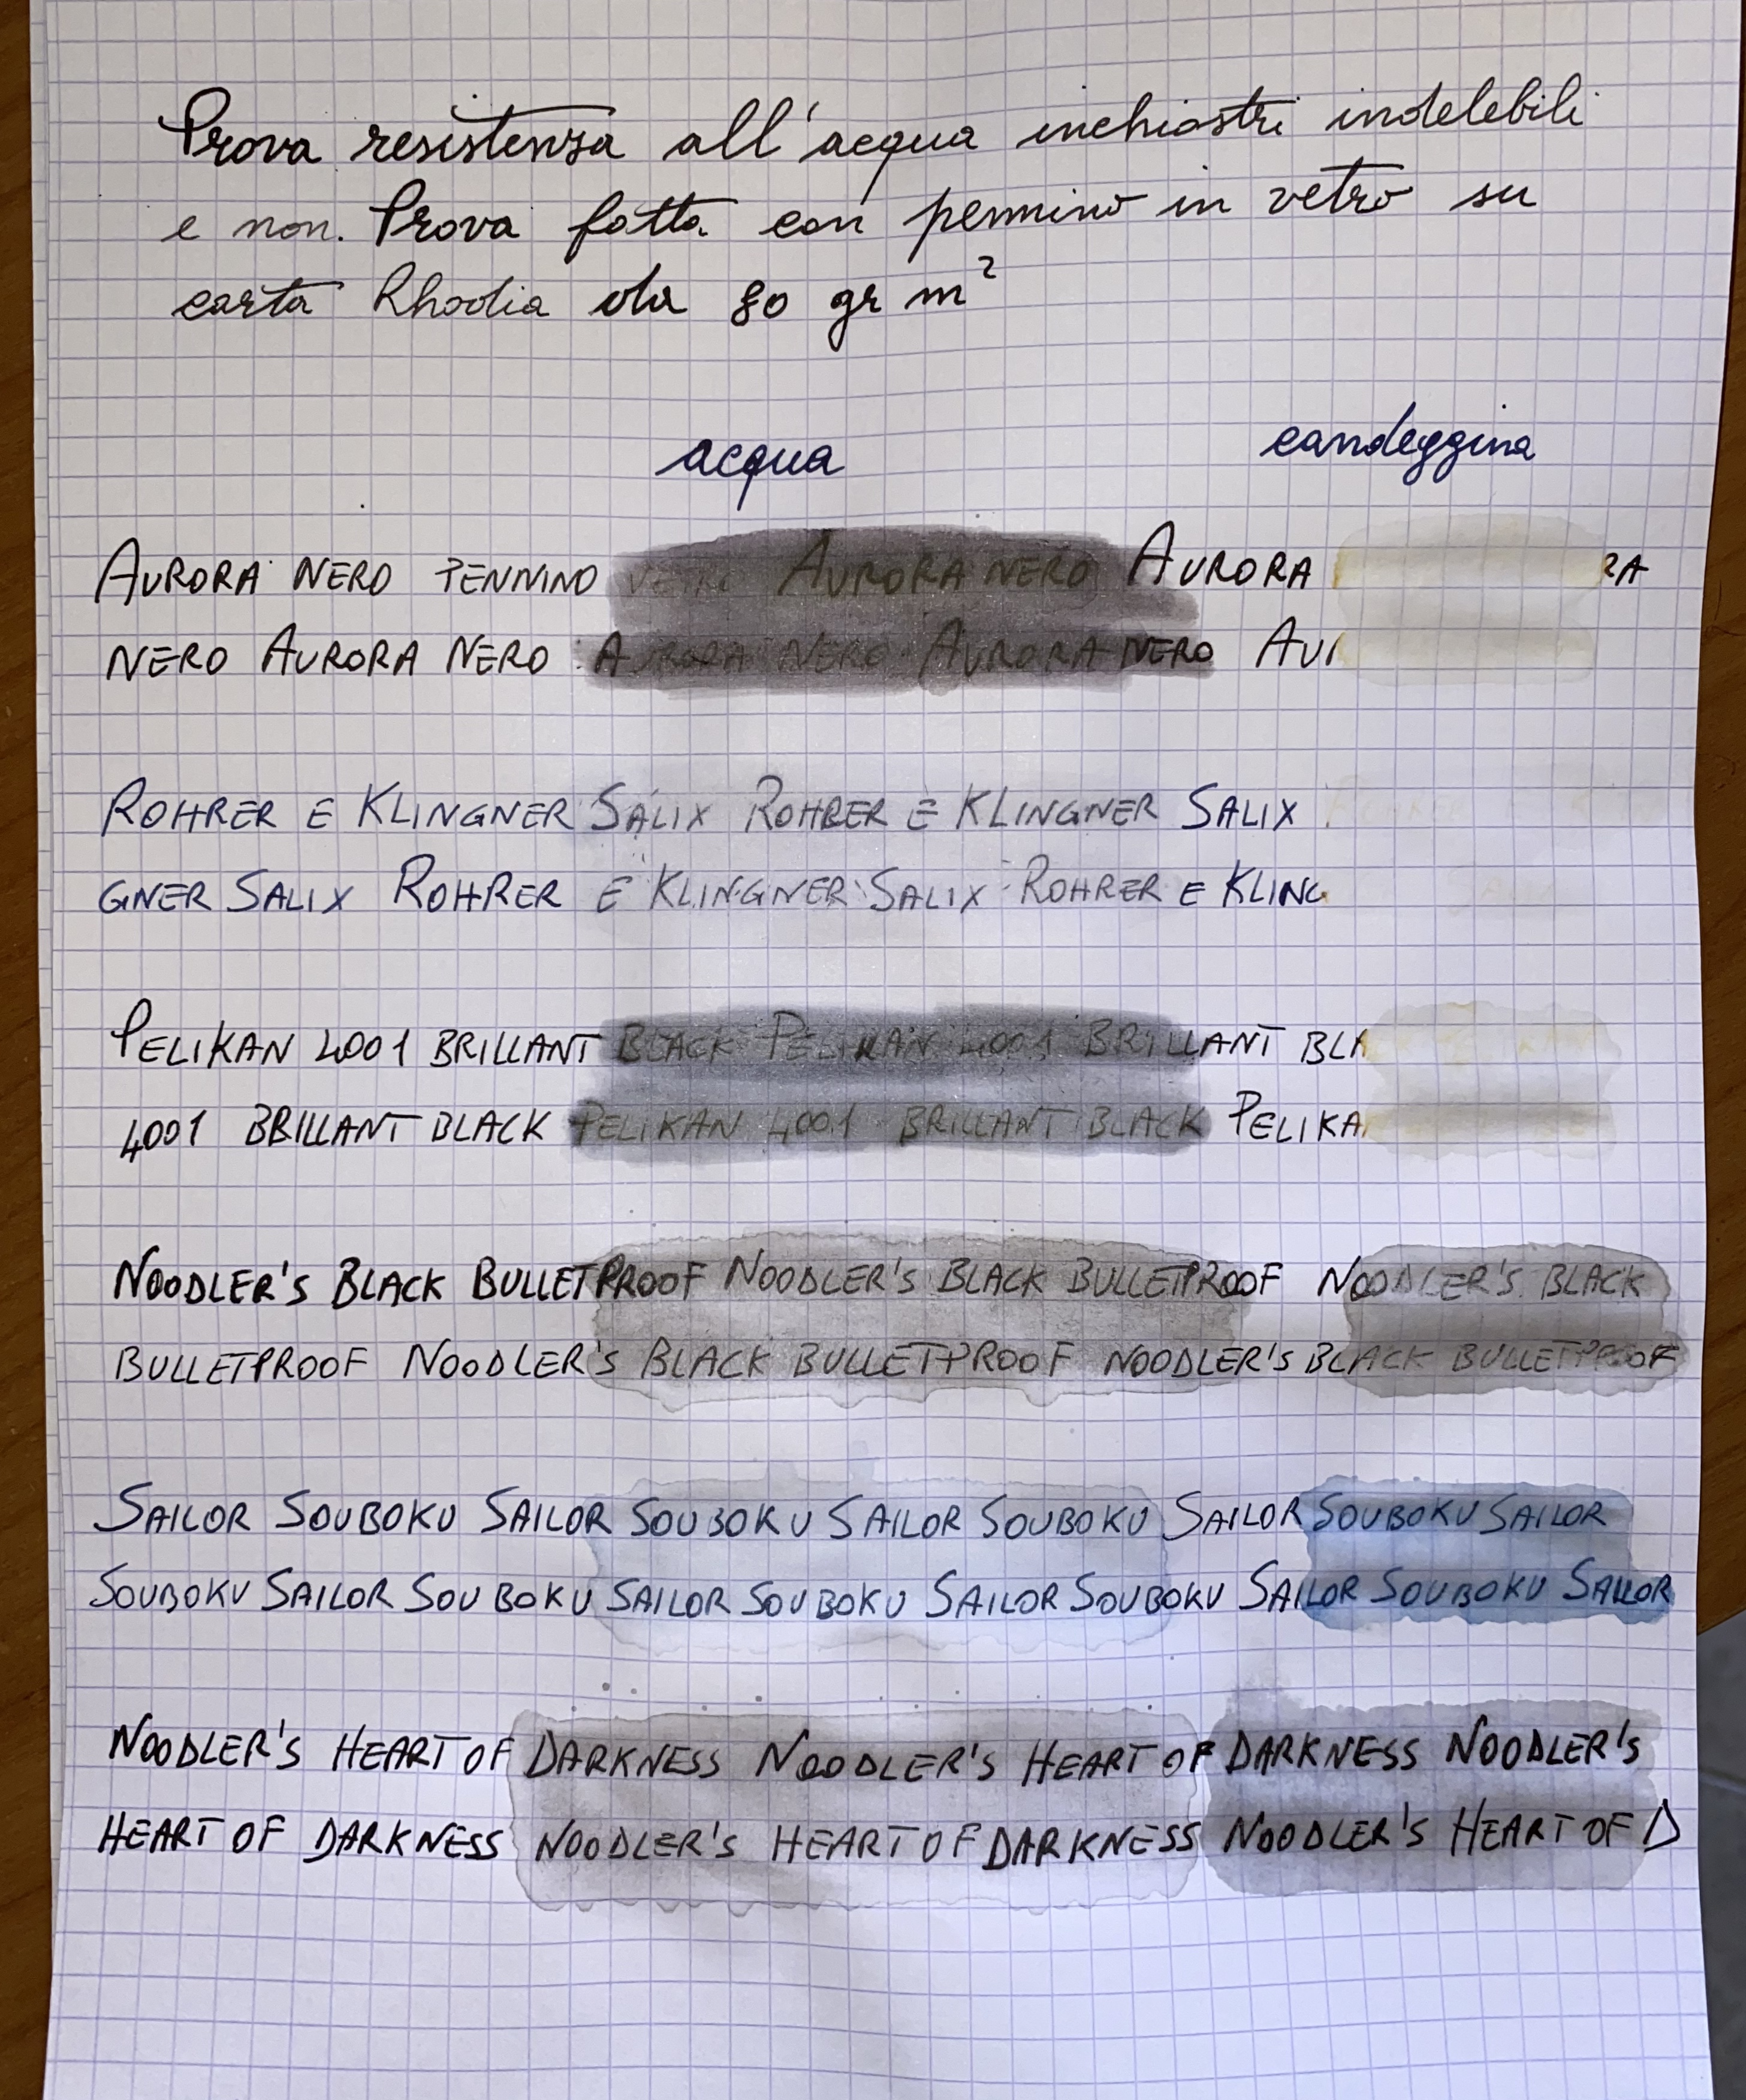 Prova resistenza all'acqua inchiostri indelebili
e non. Prova fatta con pennino in vetro su
carta Rhodia da 80 gr m²
acqua candeggina
AURORA NERO PENNINO VETRO AURORA NERO AURORA RA
NERO AURORA NERO AURORA NERO AURORA NERO AU
ROHRER E KLINGNER SALIX ROHRER E KLINGNER SALIX
GNER SALIX ROHRER E KLINGNER SALIX ROHRER E KLING
PELIKAN 4001 BRILLANT BLACK PELIKAN 4001 BRILLANT BLA
4001 BRILLANT BLACK PELIKAN 4001 BRILLANT BLACK PELIKA
NOODLER'S BLACK BULLETPROOF NOODLER'S BLACK BULLETPROOF NOODLER'S BLACK
BULLETPROOF NOODLER'S BLACK BULLETPROOF NOODLER'S BLACK BULLETPROOF
SAILOR SOUBOKU SAILOR SOUBOKU SAILOR SOUBOKU SAILOR SOUBOKU SAILOR
SOUBOKU SAILOR SOUBOKU SAILOR SOUBOKU SAILOR SOUBOKU SAILOR SOUBOKU SAILOR
NOODLER'S HEART OF DARKNESS NOODLER'S HEART OF DARKNESS NOODLER'S
HEART OF DARKNESS NOODLER'S HEART OF DARKNESS NOODLER'S HEART OF D